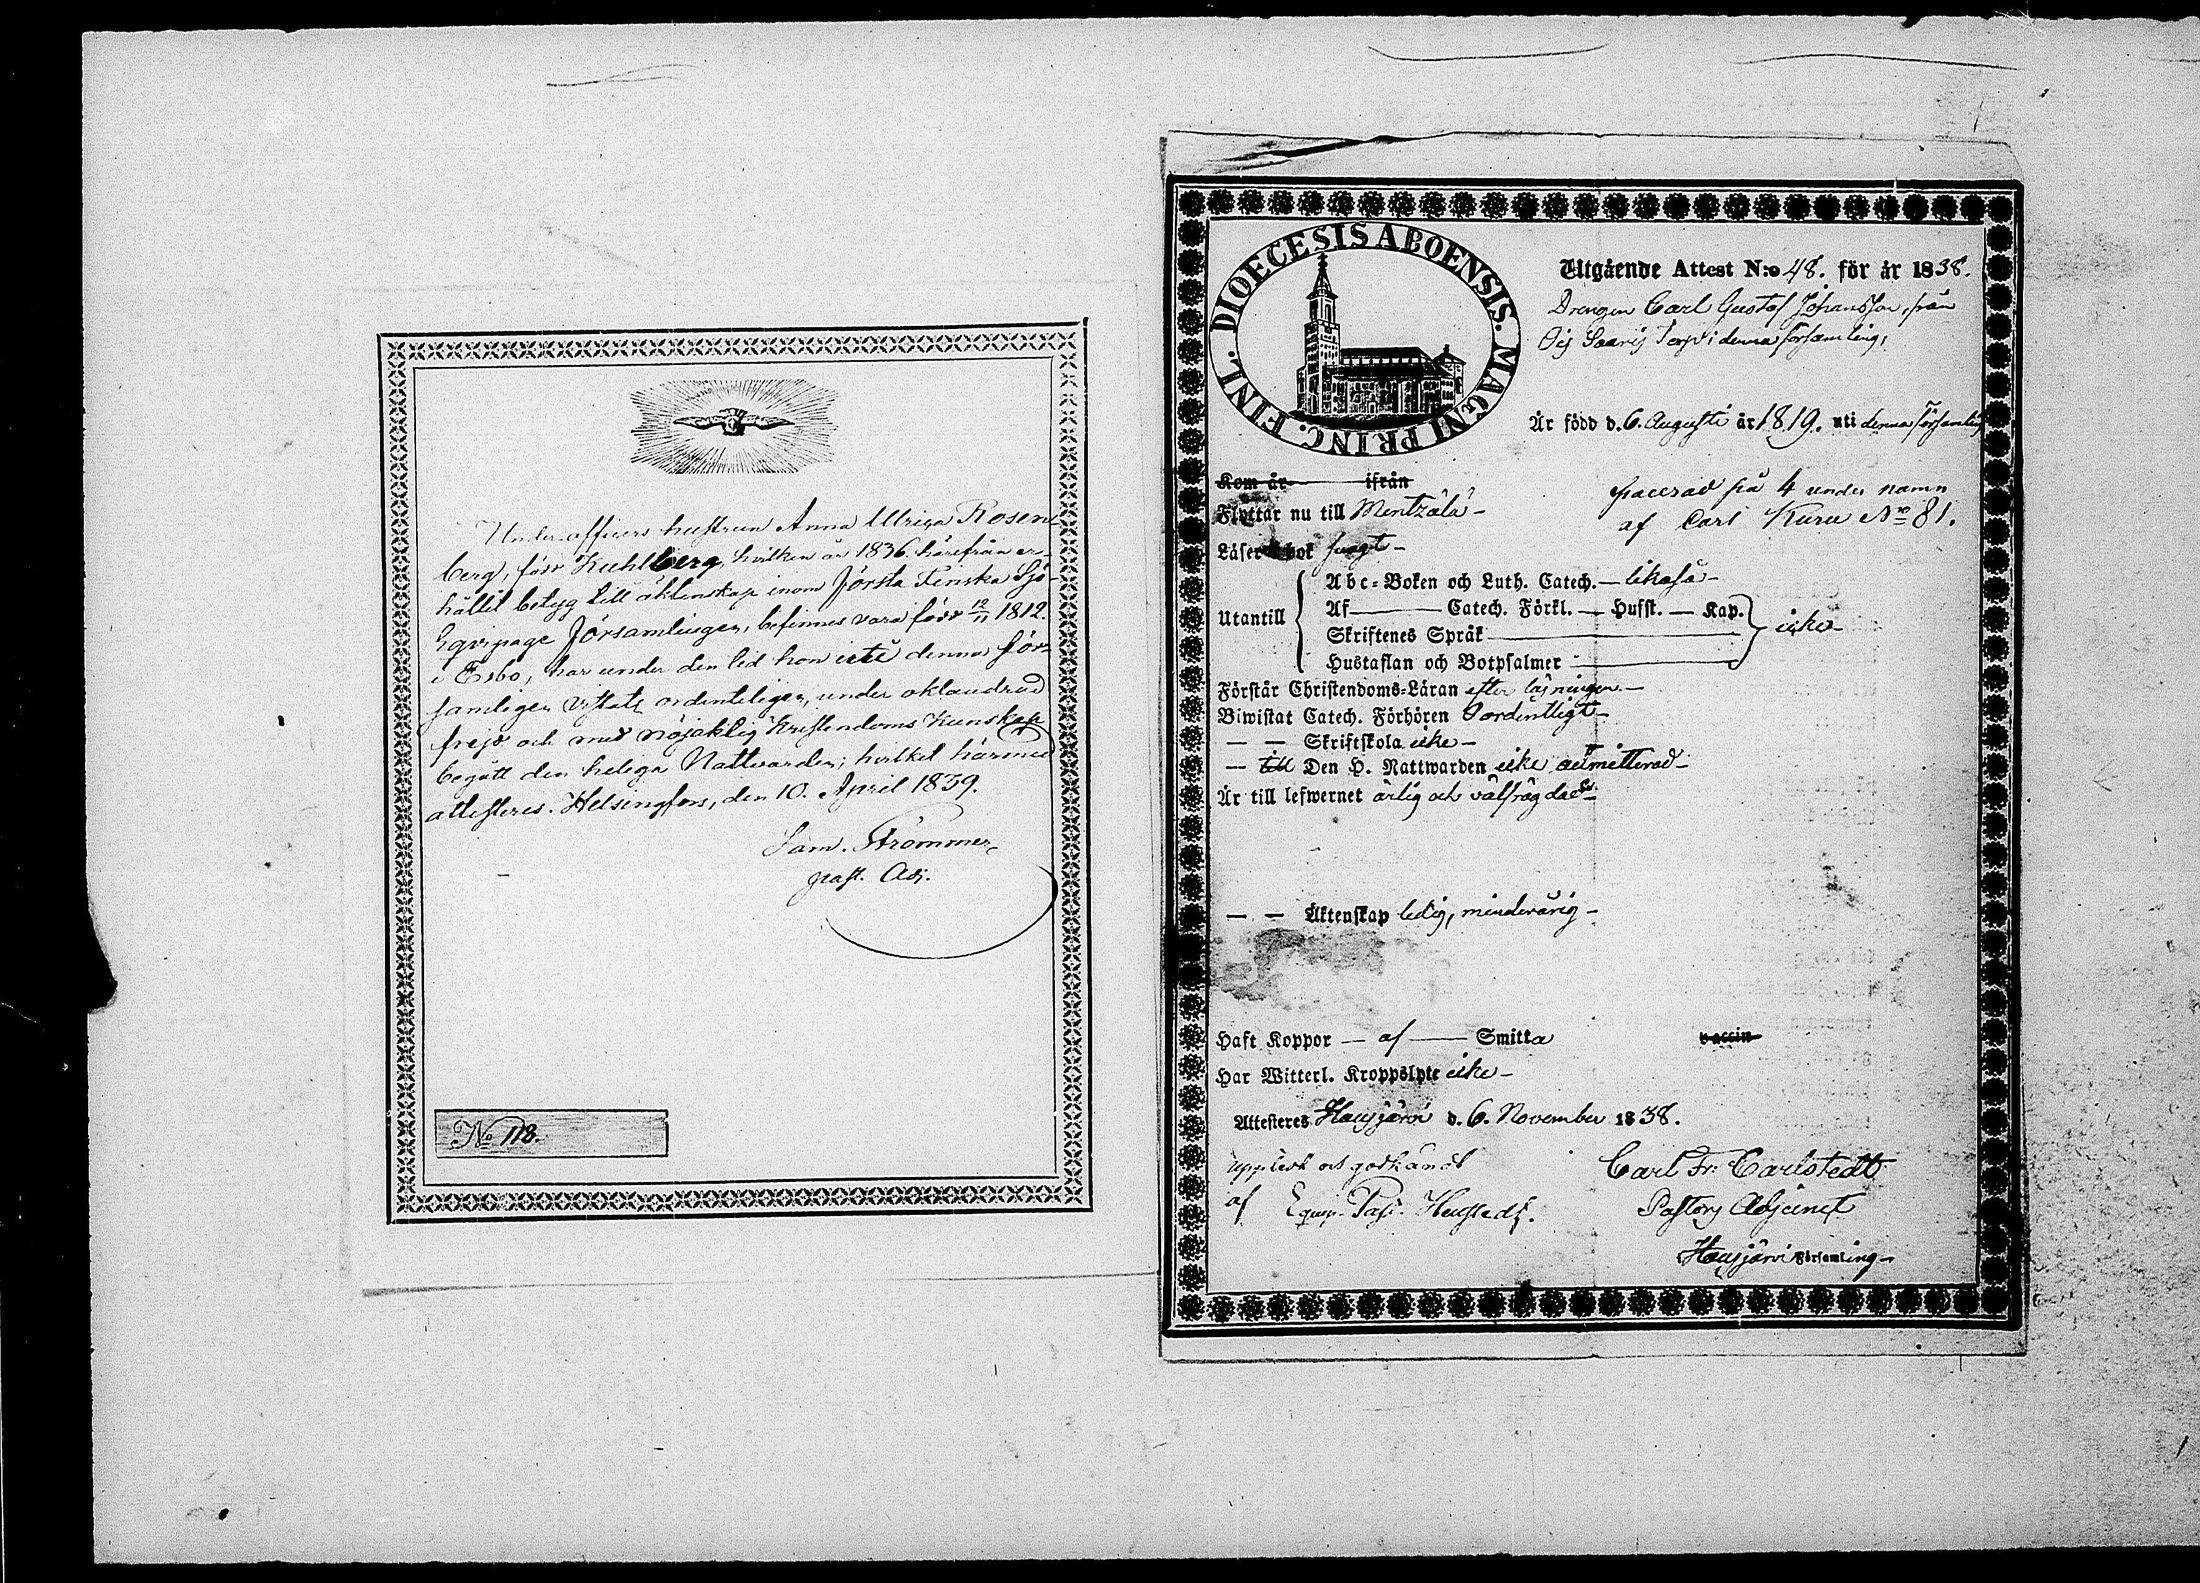 Under-officers hustrun Anna Ulrica Rosen-
berg, född Kuhlberg, hvilken år 1836 härifrån er-
hållit betyg till äktenskap inom Första Finska Sjö-
Eqvipage Församlingen, befinnes vara född 12/11 1812.
i Esbo, har under den tid hon uti denna För-
samlingen vistats ordenteligen, under oklandrad
frejd och med nöjaktig Kristendoms Kunskap
begått den heliga Nattvarden; hvilket härmed
attesteres. Helsingfors, den 10. April 1839.
Sam. Strömmer,
past. Adj.
No 118.
DIOECESIS ABOENSIS. MAGNI PRINC. FINL.
Utgående Attest N:o 48. för år 1838.
Drengen Carl Gustaf Johansson, från
Torp i denna församling,
Är född d. 6. Augusti år 1819. uti denna Församling
Kom år ifrån
Flyttar nu till Mentzälä -
placerad på 4 under namn
af Carl Kuru No 81.
Läser i bok svagt -
Utantill
Abc-Boken och Luth. Catech. - likaså -
Af Catech. Förkl. - Husst. - Kap.
Skriftenes Språk
icke
Hustaflan och Botpsalmer
Förstår Christendoms-Läran efter läsningen -
Biwistat Catech. Förhören Oordentligt -
- - Skriftskola icke -
- till Den H. Nattwarden icke admitterad -
Är till lefwernet ärlig och välfrägdad -
- - Äktenskap ledig, minderårig -
Haft Koppor - af - Smitta vaccin
Har Witterl. Kroppslyte icke -
Attesteres Hausjärvi d. 6. November 1838.
Uppläst och godkändt
af Equip. Past.
Carl Fr: Carlstedt
Pastors Adjunct
Hausjärvi Församling -